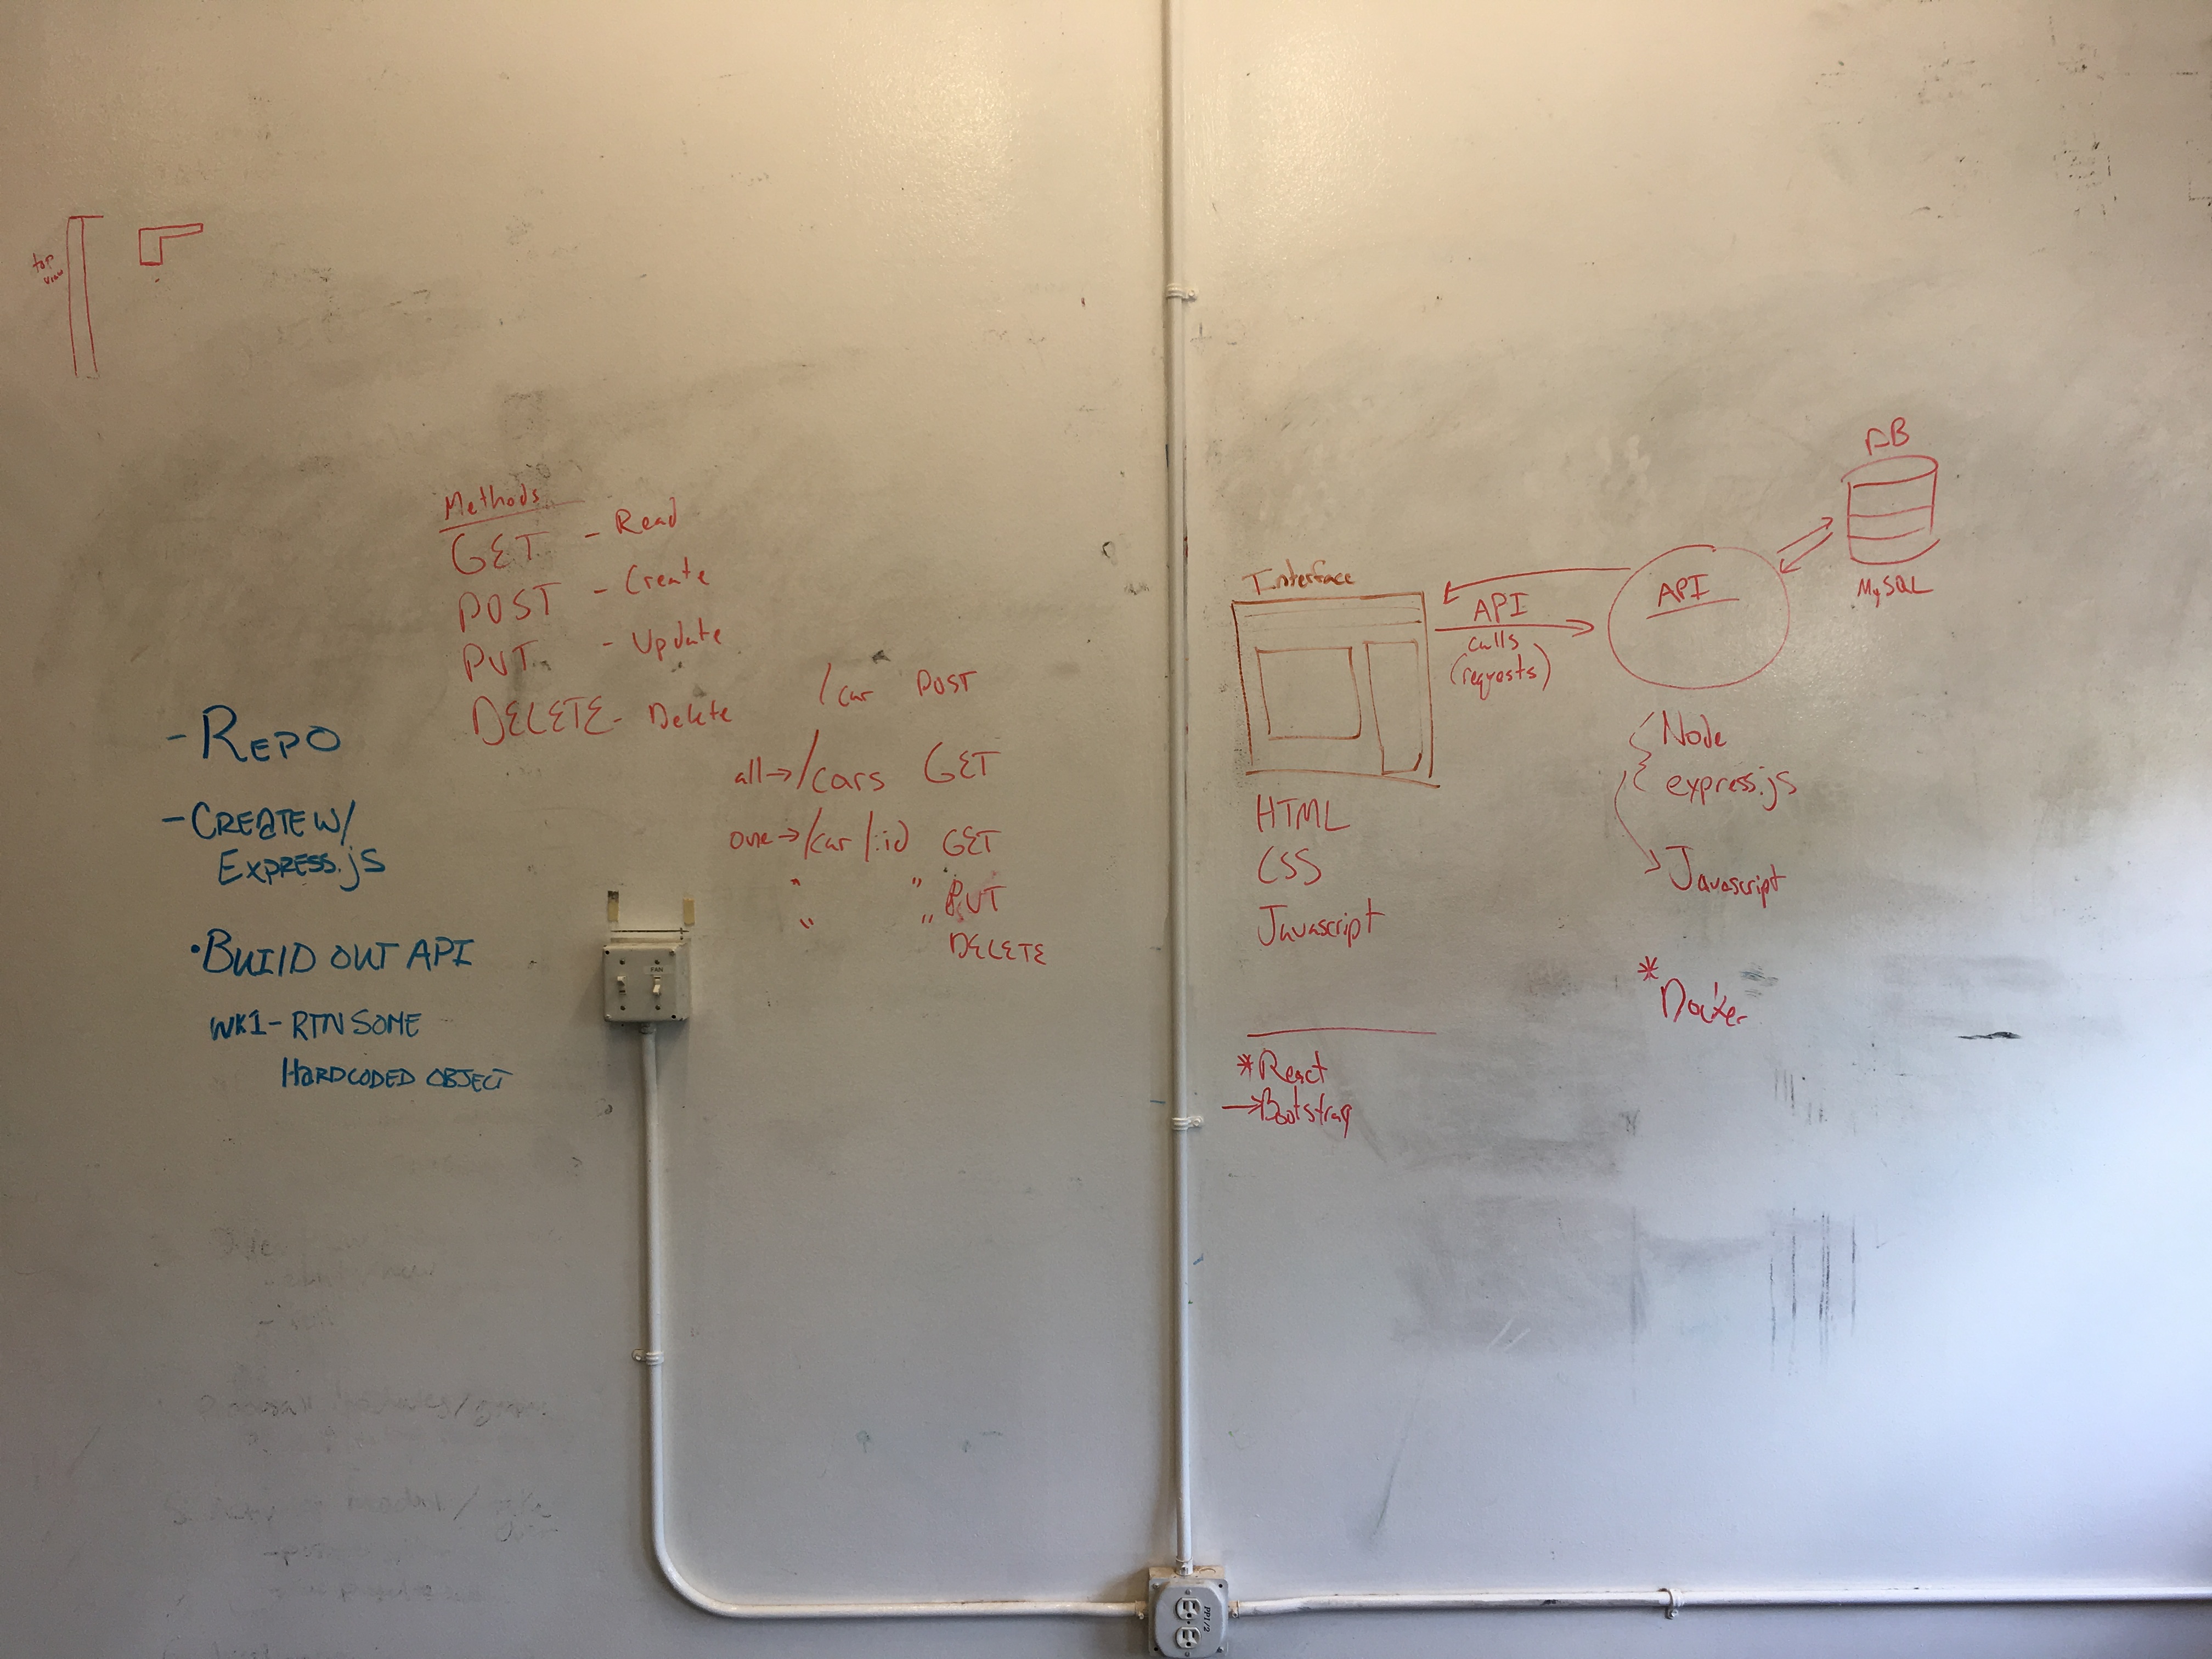 top
view
Methods
GET - Read
POST - Create
PUT - Update
DELETE - Delete
/car POST
all→ /cars GET
one→ /car/:id GET
" " PUT
" " DELETE
- REPO
- CREATE W/
EXPRESS.js
• BUILD OUT API
WK1 - RTN SOME
HARDCODED OBJECT
FAN
Interface
API
calls
(requests)
API
DB
MySQL
HTML
CSS
Javascript
* React
→ Bootstrap
Node
express.js
Javascript
* Docker
PP1/2